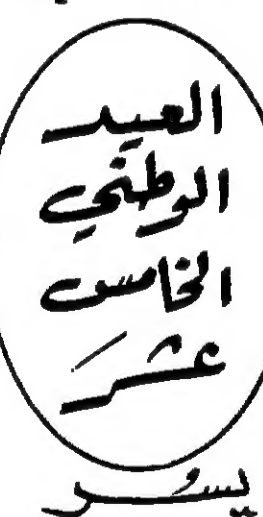 العيد
الوطني
الخامس
عشرَ
يسر